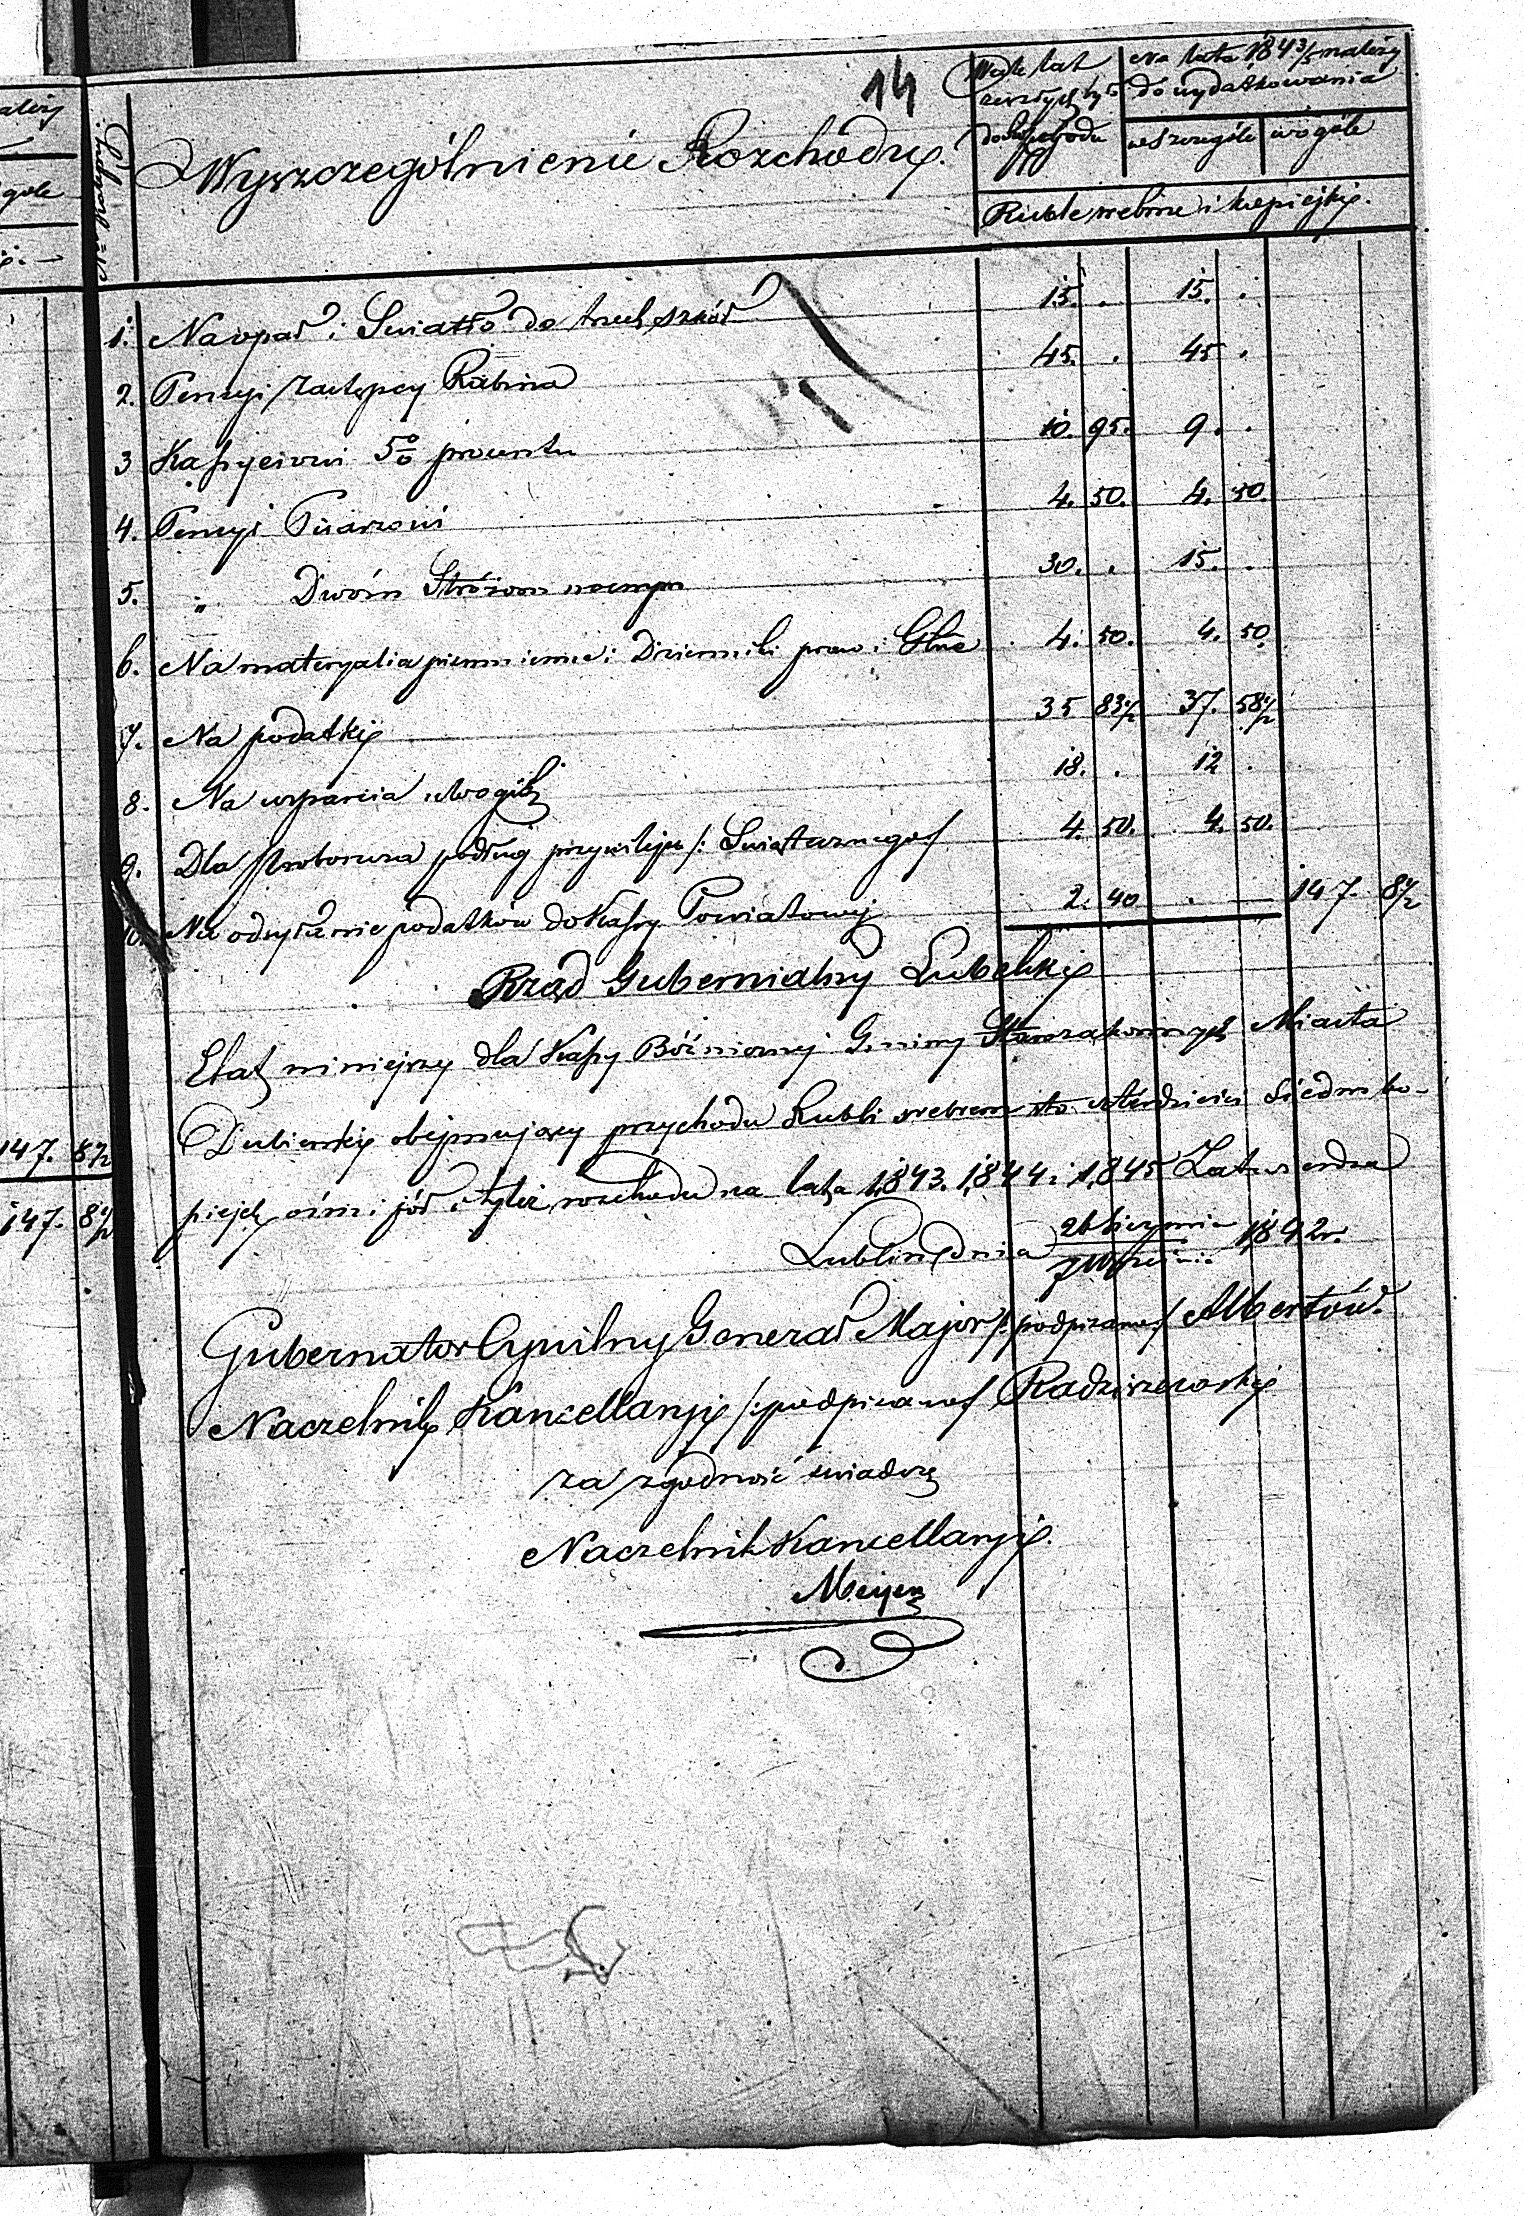 14
Wyszczególnienie Rozchodu.
Wedle lat
zeszłych
do rozchodu
Na lata 1843/5 należy
do wydatkowania
wszczególe
wogóle
Ruble srebrne i kopiejki.
1. Na opał i Swiatło do trzech szkół 15. . 15. .
2. Pensyi zastępcy Rabina 45. . 45 .
3 Kassyerowi 5% procentu 10. 95. 9. .
4. Pensyi Pisarzowi 4. 50. 4. 50.
5. „ Dwóm Stróżom nocnym 30. . 15. .
6. Na materyalia piśmienne i Dzienniki praw i 4. 50. 4. 50.
7. Na podatki 35 83½ 37. 58½
8. Na wsparcia ubogich 18. . 12 .
9. Dla podług przywileju 4. 50. 4. 50.
10. Na odsyłanie podatków do Kassy Powiatowej 2. 40 . — 147. 8½
Rząd Gubernialny Lubelski
Etat niniejszy dla Kassy Bóżniczney Gminy Starozakonnych Miasta
Dubienki obejmujący przychodu Rubli srebrem sto czterdzieści siedm ko-
piejek ośm i pół i tyleż rozchodu na lata 1843. 1844 i 1845 Zatwierdza
Lublin dnia 26 Sierpnia / 7 Września 1842 r.
Gubernator Cywilny Generał Major /:podpisano:/ Albertów.
Naczelnik Kancellaryi /:podpisano:/ Radziszewski
za zgodność świadczę
Naczelnik Kancellaryi.
Meyer
ależy
gole
147. 8½
147. 8½